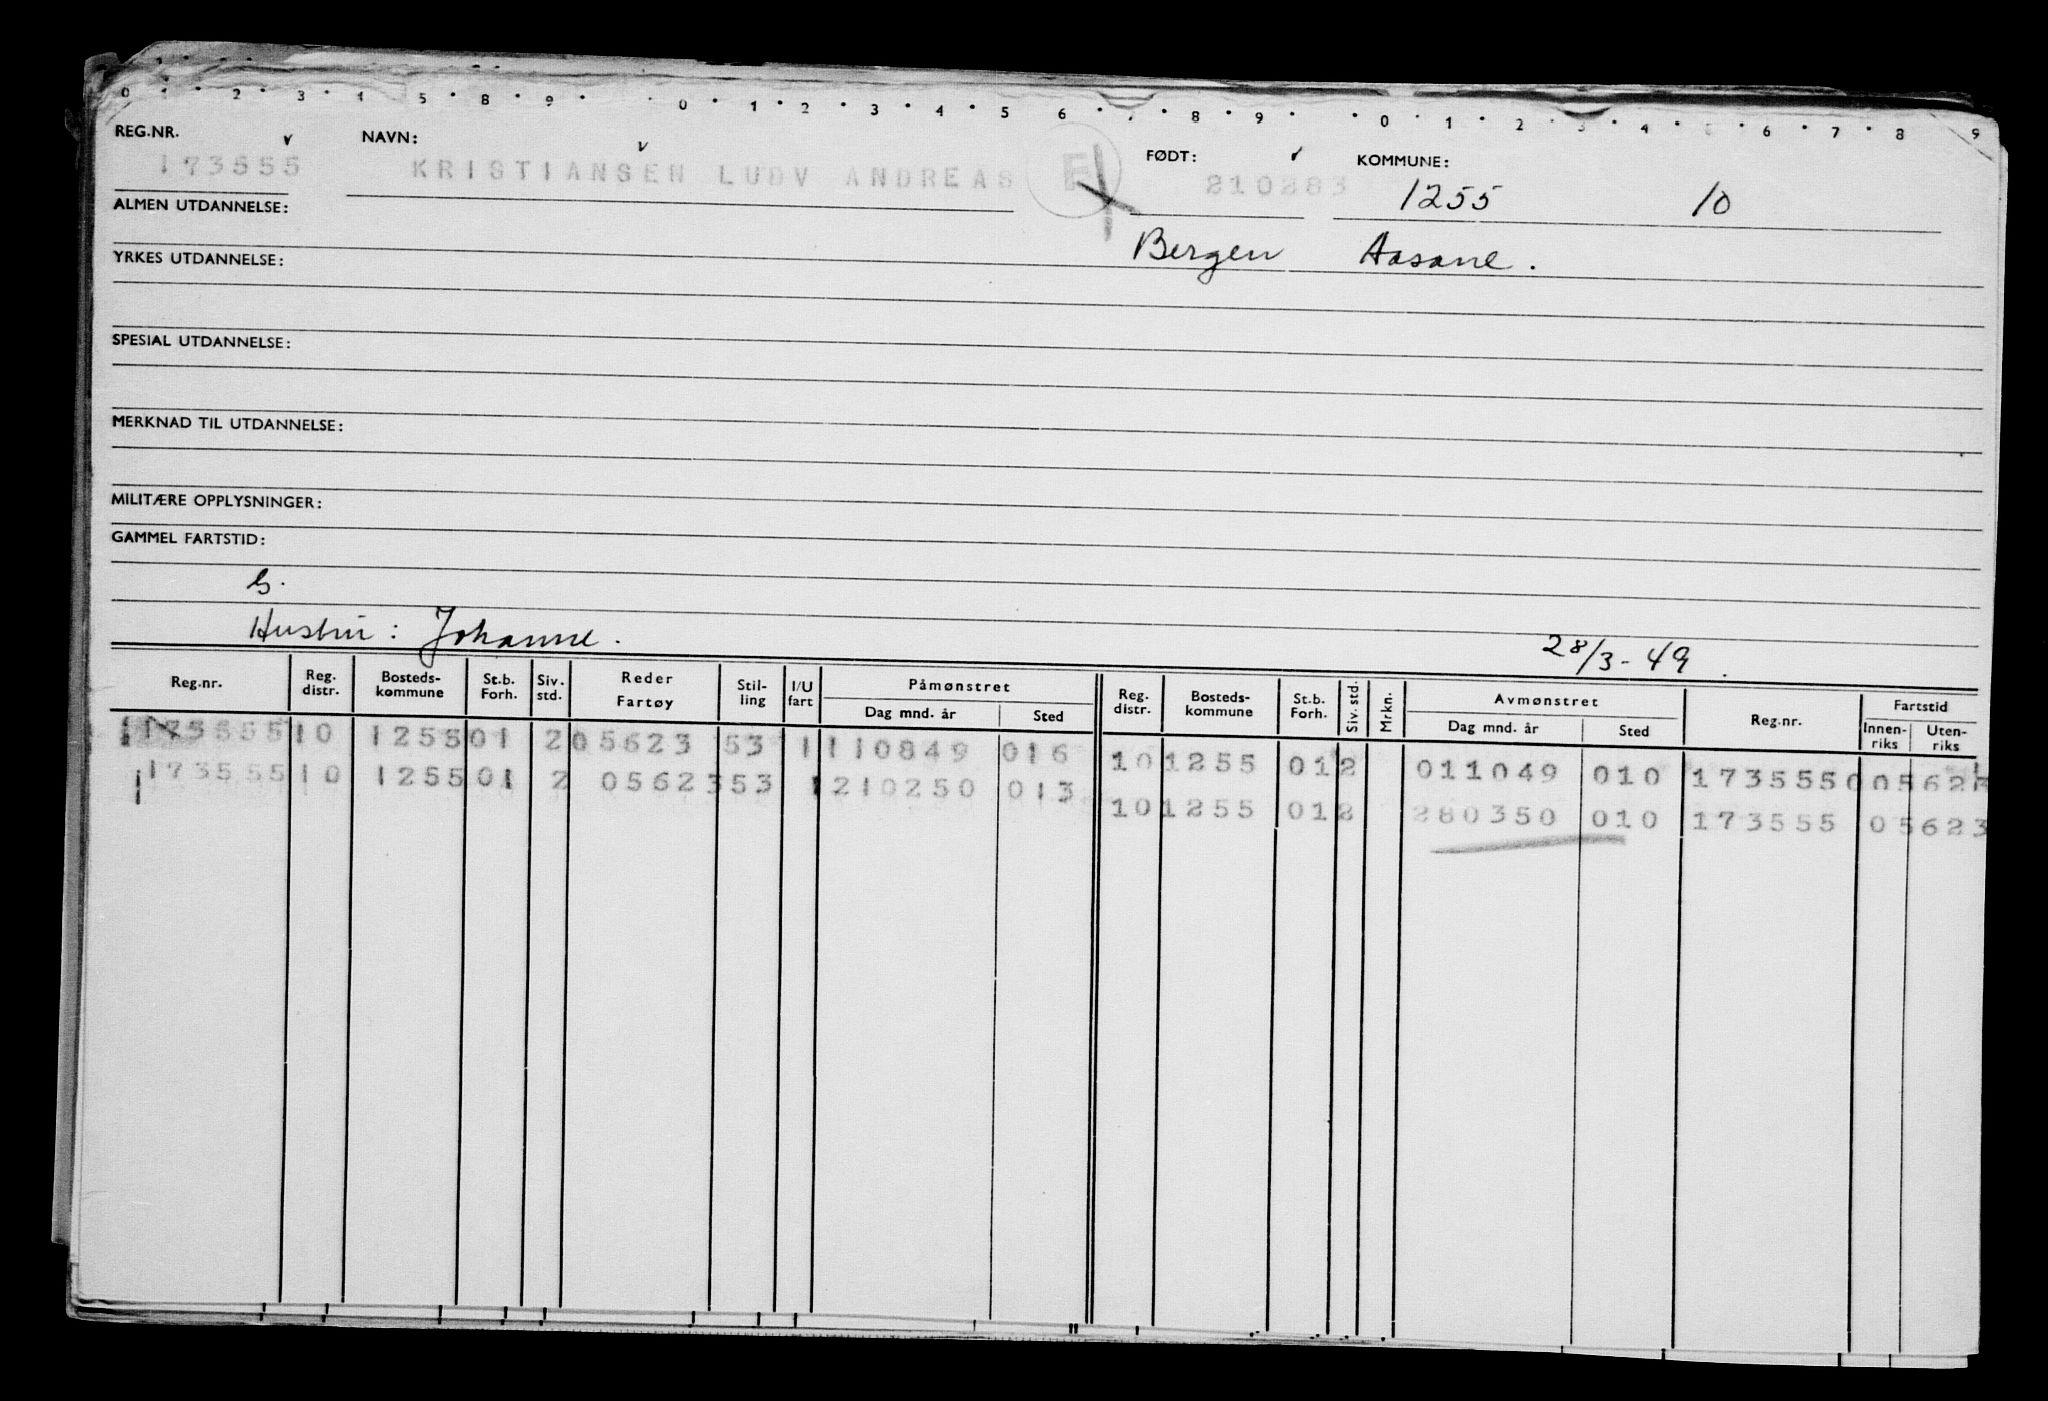 0 1 · 2 · 3 · 4 · 5 · 8 · 9 · · 0 · 1 · 2 · 3 · 4 · 5 6 · · 8 · 9 · · 0 · 1 · 2 · 3 · 4 · 5 · 6 · 7 · 8 9
REG.NR. NAVN: FØDT: KOMMUNE:
173555 KRISTIANSEN LUDV ANDREAS F 210283 1255 10
ALMEN UTDANNELSE:
Bergen Aasane.
YRKES UTDANNELSE:
SPESIAL UTDANNELSE:
MERKNAD TIL UTDANNELSE:
MILITÆRE OPPLYSNINGER:
GAMMEL FARTSTID:
Hustru: Johanne. 28/3-49.
Reg.nr. Reg. distr. Bosteds-kommune St.b. Forh. Siv. std. Reder Fartøy Stil-ling I/U fart Påmønstret Dag mnd. år Sted Reg. distr. Bosteds-kommune St.b. Forh. Siv. std. Mrkn. Avmønstret Dag mnd. år Sted Reg.nr. Fartstid Innen-riks Uten-riks
173555 10 1255 01 2 05623 53 1 110849 016 10 1255 01 2 011049 010 173555 005623
173555 10 1255 01 2 05623 53 1 210250 013 10 1255 01 2 280350 010 173555 05623